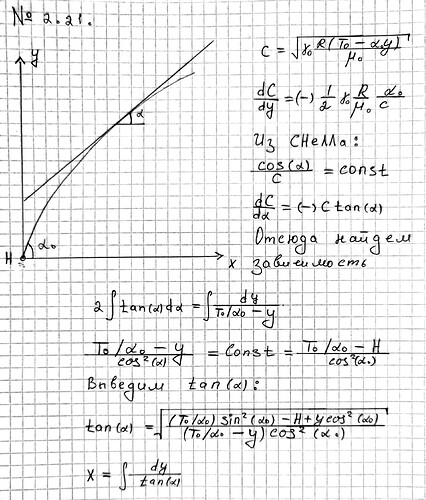 № 2.21.
y
α
H
α₀
x
C = √(γ₀ R(T₀ - α₀y)/μ₀)
dC/dy = (-) 1/2 γ₀ R/μ₀ α₀/c
Из СНеллa:
cos(α)/C = const
dC/dα = (-) C tan(α)
Отсюда найдем
зависимость
2∫tan(α)dα = ∫dy/(T₀/α₀ - y)
(T₀/α₀ - y)/cos²(α) = Const = (T₀/α₀ - H)/cos²(α₀)
Выведим tan(α):
tan(α) = √(((T₀/α₀) sin²(α₀) - H + y cos²(α₀))/((T₀/α₀ - y) cos²(α₀)))
X = ∫dy/tan(α)